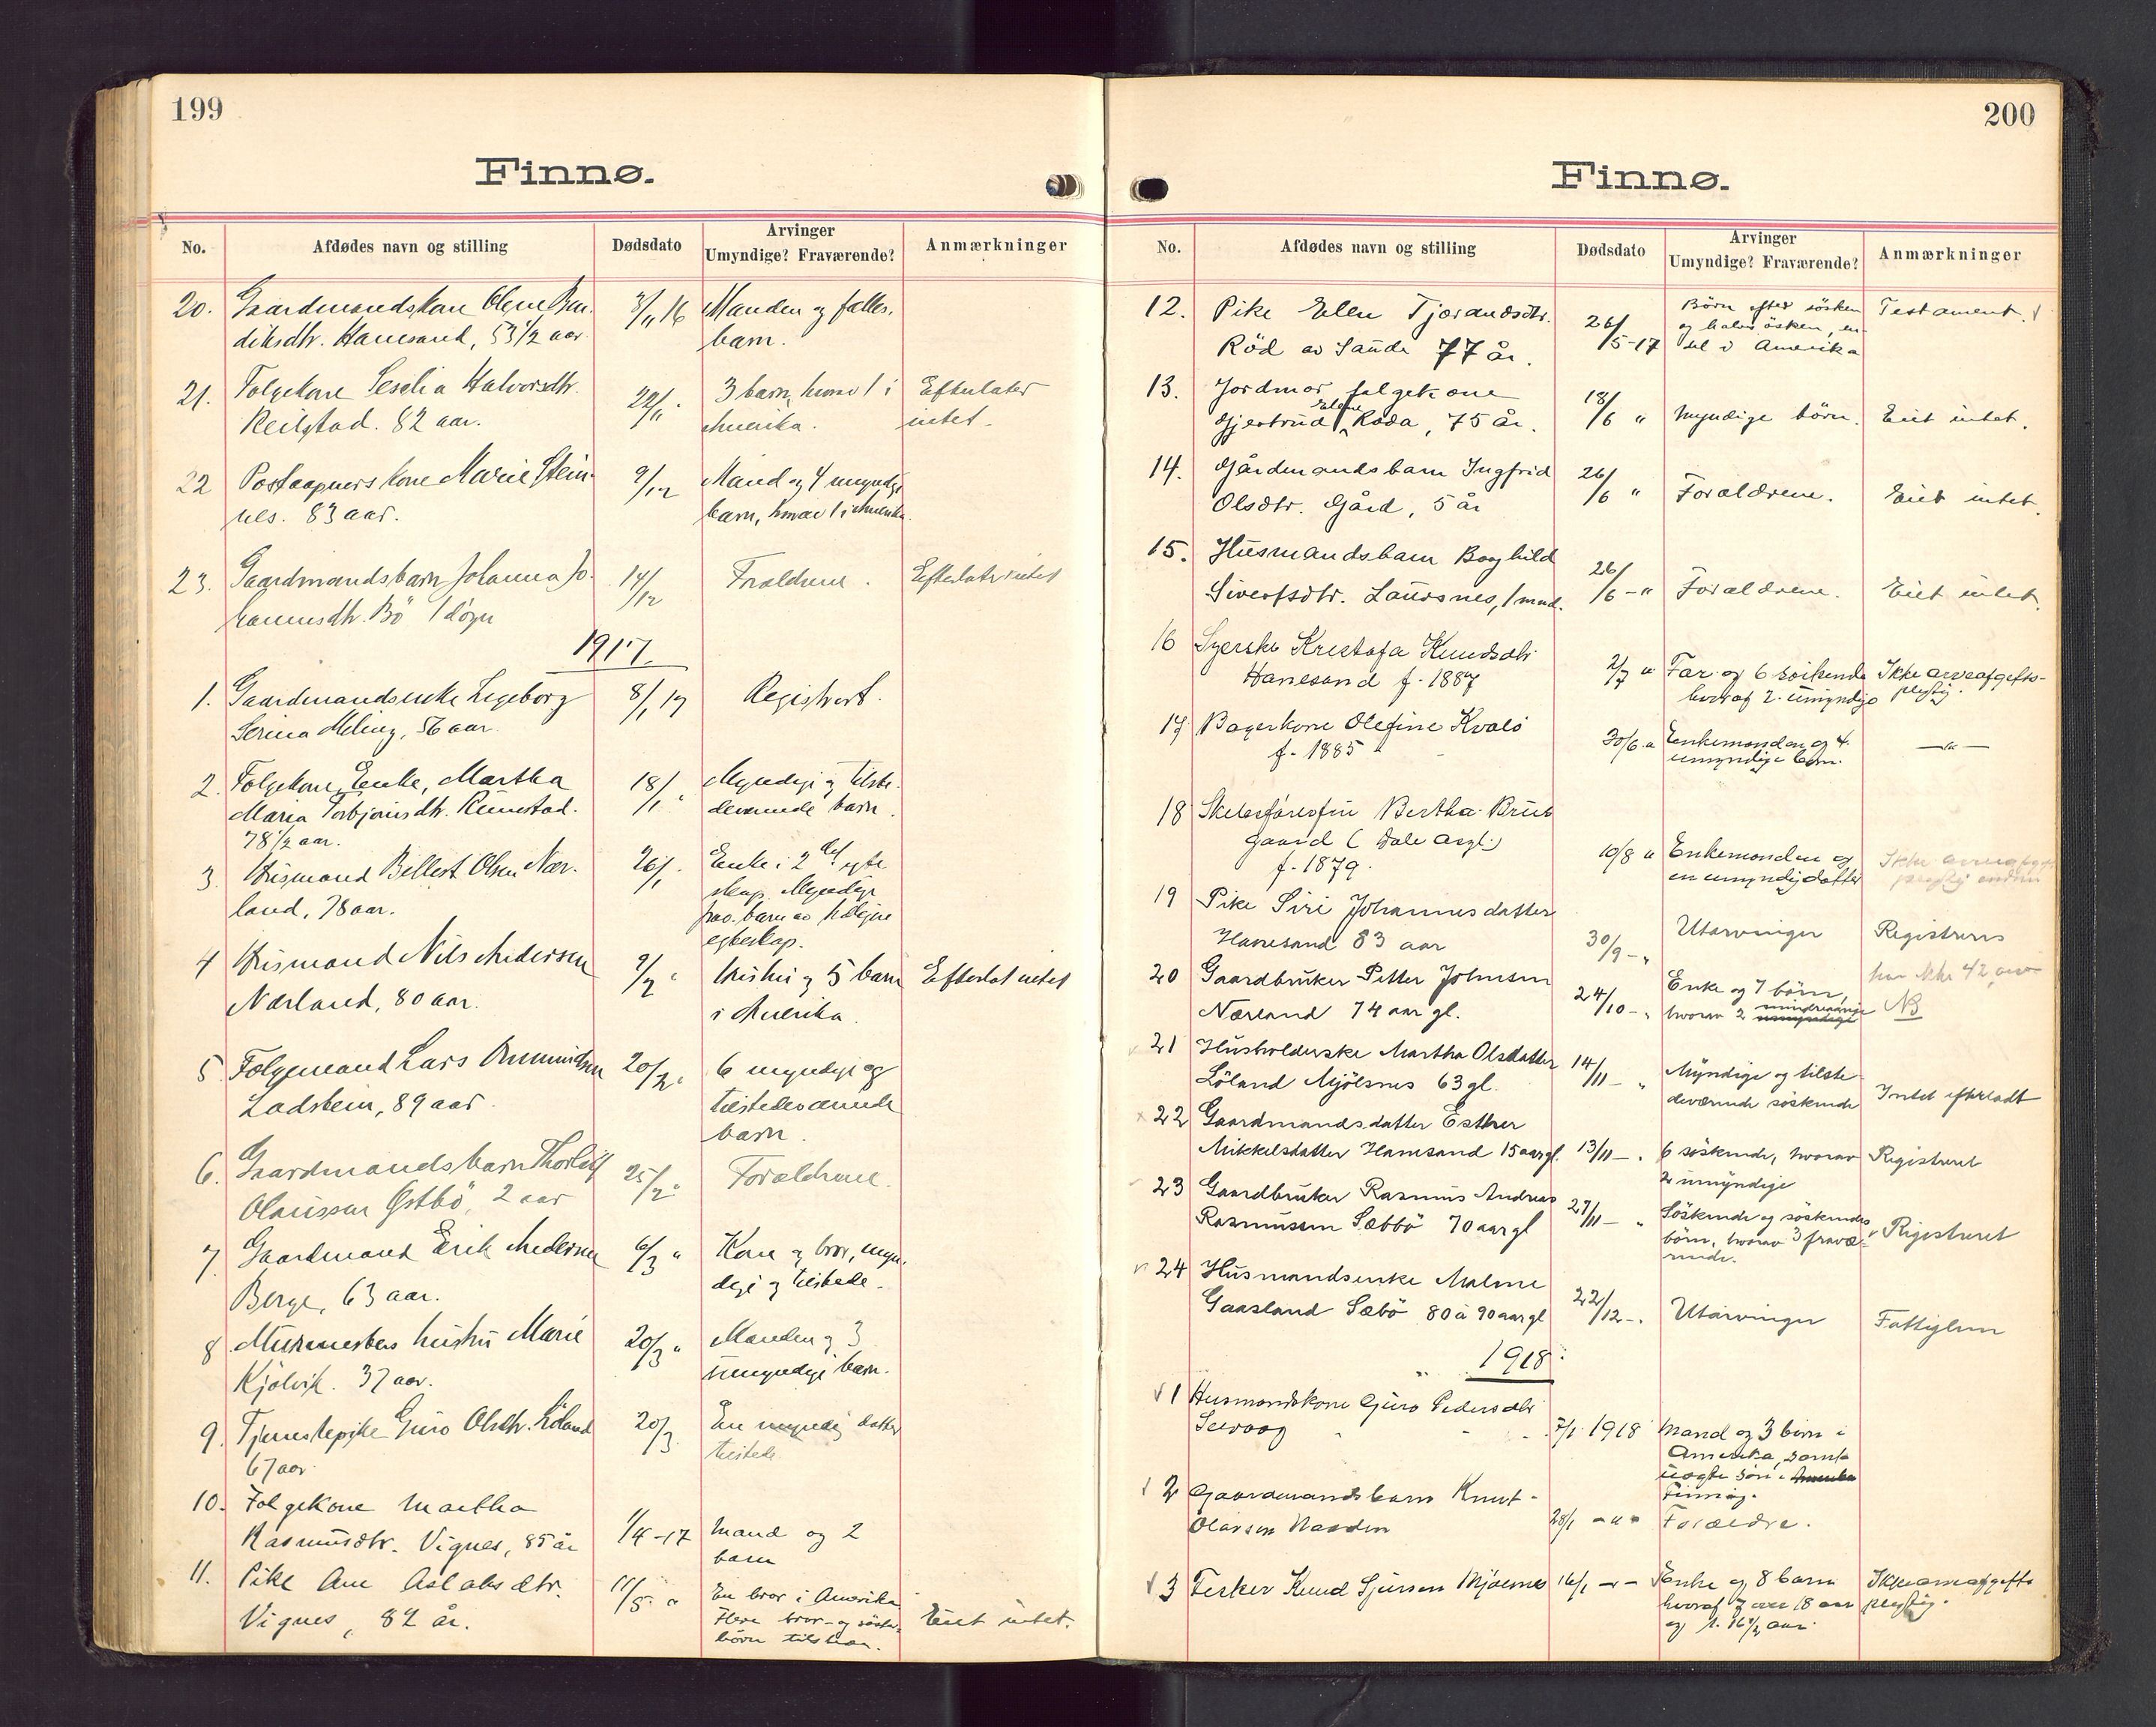 199
Finnø.
No. Afdødes navn og stilling Dødsdato Arvinger Umyndige? Fraværende? Anmærkninger
20. Gaardmandskone Olene Ben- 3/11 16 Manden og fælles.
diksdtr. Hanesand, 53 1/2 aar. barn.
21. Folgekone Seselia Halvorsdtr. 22/11 " 3 barn, hvorav 1 i Efterlater
Reilstad. 82 aar. Amerika. intet.
22 Postaapners kone Marie Stein- 9/12 Mand og 4 myndige
nes. 83 aar. barn, hvorav 1 i Amerika.
23. Gaardmandsbarn Johanna Jo- 14/12 Forældrene. Efterlater intet
hannesdtr. Bö 1 døgn
1917.
1. Gaardmandsenke Ingeborg 8/1 17 Registrert.
Serina Meling, 56 aar.
2. Folgekone, Enke, Martha 18/1 " Myndige og tilste-
Maria Torbjörnsdtr. Rennestad. deværende barn.
78 1/2 aar.
3. Husmand Bellest Olsen Nær- 26/1 " Enke i 2det egte
land, 78 aar. skap. Myndige
fra. barn av
egteskap.
4 Husmand Nils Andersen 9/2 " Hustru og 5 barn Efterlot intet
Nærland, 80 aar. i Amerika.
5 Folgemand Lars Ommundsen 20/2 " 6 myndige og
Ladstein, 89 aar. tilstedeværende
barn.
6. Gaardmandsbarn Thorleif 25/2 " Forældrene.
Olaussen Østbö, 2 aar
7 Gaardmand Erik Andersen 6/3 " Kone og bror, myn-
Berge, 63 aar. dige og tilstede.
8 Murmesters hustru Marie 20/3 " Manden og 3
Kjölvik. 37 aar. umyndige barn.
9. Tjenestepike Guro Olsdtr. Löland 20/3 En myndig datter
67 aar tilstede
10. Folgekone Martha
Rasmusdtr. Vignes, 85 år 1/4-17 Mand og 2
barn
11. Pike Ane Aslaksdtr. 11/5 " En bror i Amerika
Vignes, 82 år. Flere bror- og söster- Eiet intet.
börn tilstede.
200
Finnø.
No. Afdødes navn og stilling Dødsdato Arvinger Umyndige? Fraværende? Anmærkninger
12. Pike Ellen Tjørandsdtr. 26/5-17 Börn efter sösken Testament.
Röd av Saude 77 år. og halvsösken, en
del i Amerika
13. Jordmor, folgekone
Gjertrud Elene Roda, 75 år. 18/6 " Myndige börn. Eiet intet.
14. Gårdmandsbarn Ingfrid 26/6 " Forældrene. Eiet intet.
Olsdtr. Gård, 5 år
15. Husmandsbarn Borghild
Sivertsdtr. Laursnes, 1 mnd. 26/6 - " Forældrene. Eiet intet.
16 Syerske Kristofa Knudsdtr
Hanesand f. 1887 2/7 " Far og 6 söskende Ikke arveafgifts-
hvoraf 2 umyndige pligtig.
17 Bagerkone Olefine Kvalö 30/6 " Enkemanden og 4
f. 1885 umyndige barn. — " —
18 Bertha Brue
gaard ( Dale asyl.)
f. 1879. 10/8 " Enkemanden og
en umyndig datter
19 Pike Siri Johannesdatter
Hanesand 83 aar 30/9 - " Utarvinger Registreres
20 Gaardbruker Petter Johnsen 24/10 - " Enke og 7 börn,
Nærland 74 aar gl. hvorav 2 mindreaarige NB
21 Husholderske Martha Olsdatter 14/11 - " Myndige og tilste-
Löland Mjölsnes 63 gl. deværende söskende Intet efterladt
22 Gaardmandsdatter Esther
Mikkelsdatter Hanesand 15 aar gl. 13/11 - " 6 söskende, hvorav Registreret
2 umyndige
23 Gaardbruker Rasmus Andreas 27/11 - " Söskende og söskendes
Rasmussen Sæbbö 70 aar gl börn, hvorav 3 fravæ- Registreret
rende.
24 Husmandsenke Malene
Gaasland Sæbö 80 à 90 aar gl 22/12 - " Utarvinger Fattiglem
1918.
1 Husmandskone Guro Pedersdtr
7/1 1918 Mand og 3 börn i
Amerika, samt
sön i Amerika
Finnöy.
2 Gaardmandsbarn Knut
Olavsen Naaden 28/1 - " - Forældre.
3 Fisker Knud Sjursen Mjølsnes 16/1 - " - Enke og 8 barn Ikke arveafgifts
hvoraf 7 over 18 aar pligtig.
og 1. 16 1/2 aar.